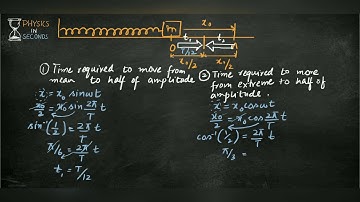 PHYSICS
IN
SECONDS
m
x₀
O
t₁
t₂
T/12
x₀/2
x₀/2
① Time required to move from
mean to half of amplitude
x = x₀ sinωt
x₀/2 = x₀ sin 2π/T t
sin⁻¹(1/2) = 2π/T t
π/6 = 2π/T t
t = T/12
② Time required to move
from extreme to half of
amplitude.
x = x₀ cosωt
x₀/2 = x₀ cos 2π/T t
cos⁻¹(1/2) = 2π/T t
π/3 =